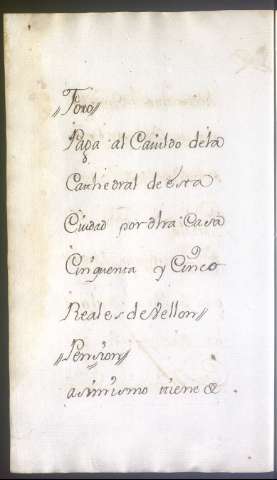 //Foro//
Paga al Cavildo de la
Cathedral de esta
Ciudad por dha Casa
Cinquenta y Cinco
Reales de Vellon//
//Pension//
asimismo tiene &